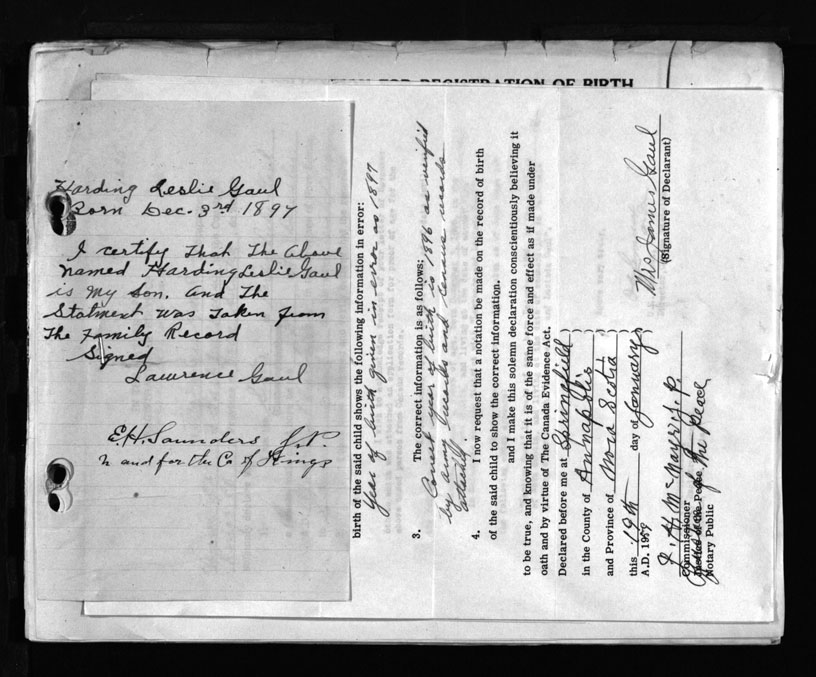 TION FOR REGISTRATION OF BIRTH
Harding Leslie Gaul
Born Dec. 3rd 1897
I certify that the above
named Harding Leslie Gaul
is my son. and the
Statment was taken from
the family Record
Signed
Lawrence Gaul
E.H. Saunders J.P.
n and for the Co of Kings
birth of the said child shows the following information in error:
Year of birth given in error as 1897
3. The correct information is as follows;
Correct year of birth is 1896 as verified
by army records and census records
4. I now request that a notation be made on the record of birth
of the said child to show the correct information.
and I make this solemn declaration conscientiously believing it
to be true, and knowing that it is of the same force and effect as if made under
oath and by virtue of The Canada Evidence Act.
Declared before me at Springfield
in the County of Annapolis
and Province of Nova Scotia
this 19th day of January
A.D. 1959
Mrs James Gaul
(Signature of Declarant)
J.P.
Commissioner
of the Peace
Notary Public